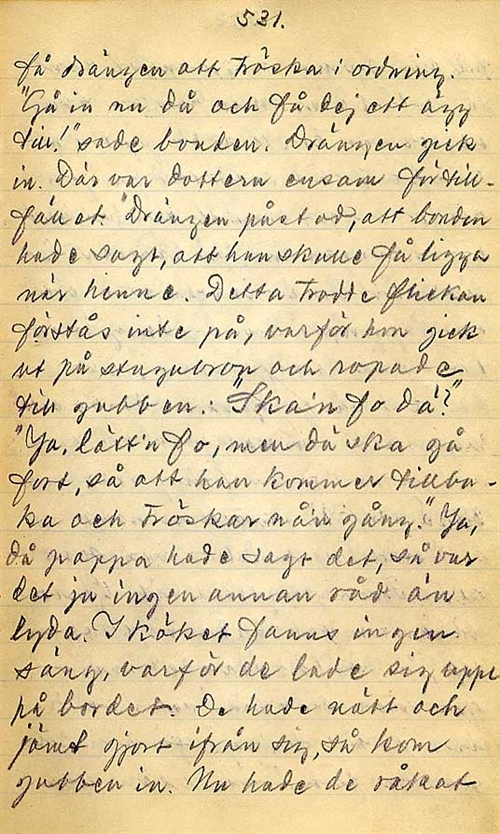 531.
få drängen att tröska i ordning.
"Gå in nu då och få dej ett ägg
till!" sade bonden. Drängen gick
in. Där var dottern ensam för till-
fället. Drängen påstod, att bonden
hade sagt, att han skulle få ligga
när henne. Detta trodde flickan
förstås inte på, varför hon gick
ut på stugubron och ropade
till gubben: "Ska'n fo då?"
"Ja, lätt'n fo, men dä ska gå
fort, så att han kommer tillba-
ka och tröskar nå'n gång." Ja,
då pappa hade sagt det, så var
det ju ingen annan råd än
lyda. I köket fanns ingen
säng, varför de lade sig uppe
på bordet. De hade nätt och
jämt gjort ifrån sig, så kom
gubben in. Nu hade de råkat